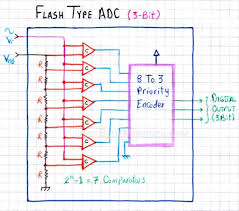 FLASH TYPE ADC (3-Bit)
Vi
R
R
R
R
R
R
R
C
C
C
C
C
C
C
8 To 3
Priority
Encoder
DIGITAL
OUTPUT
(3Bit)
2ⁿ-1 = 7 Comparators